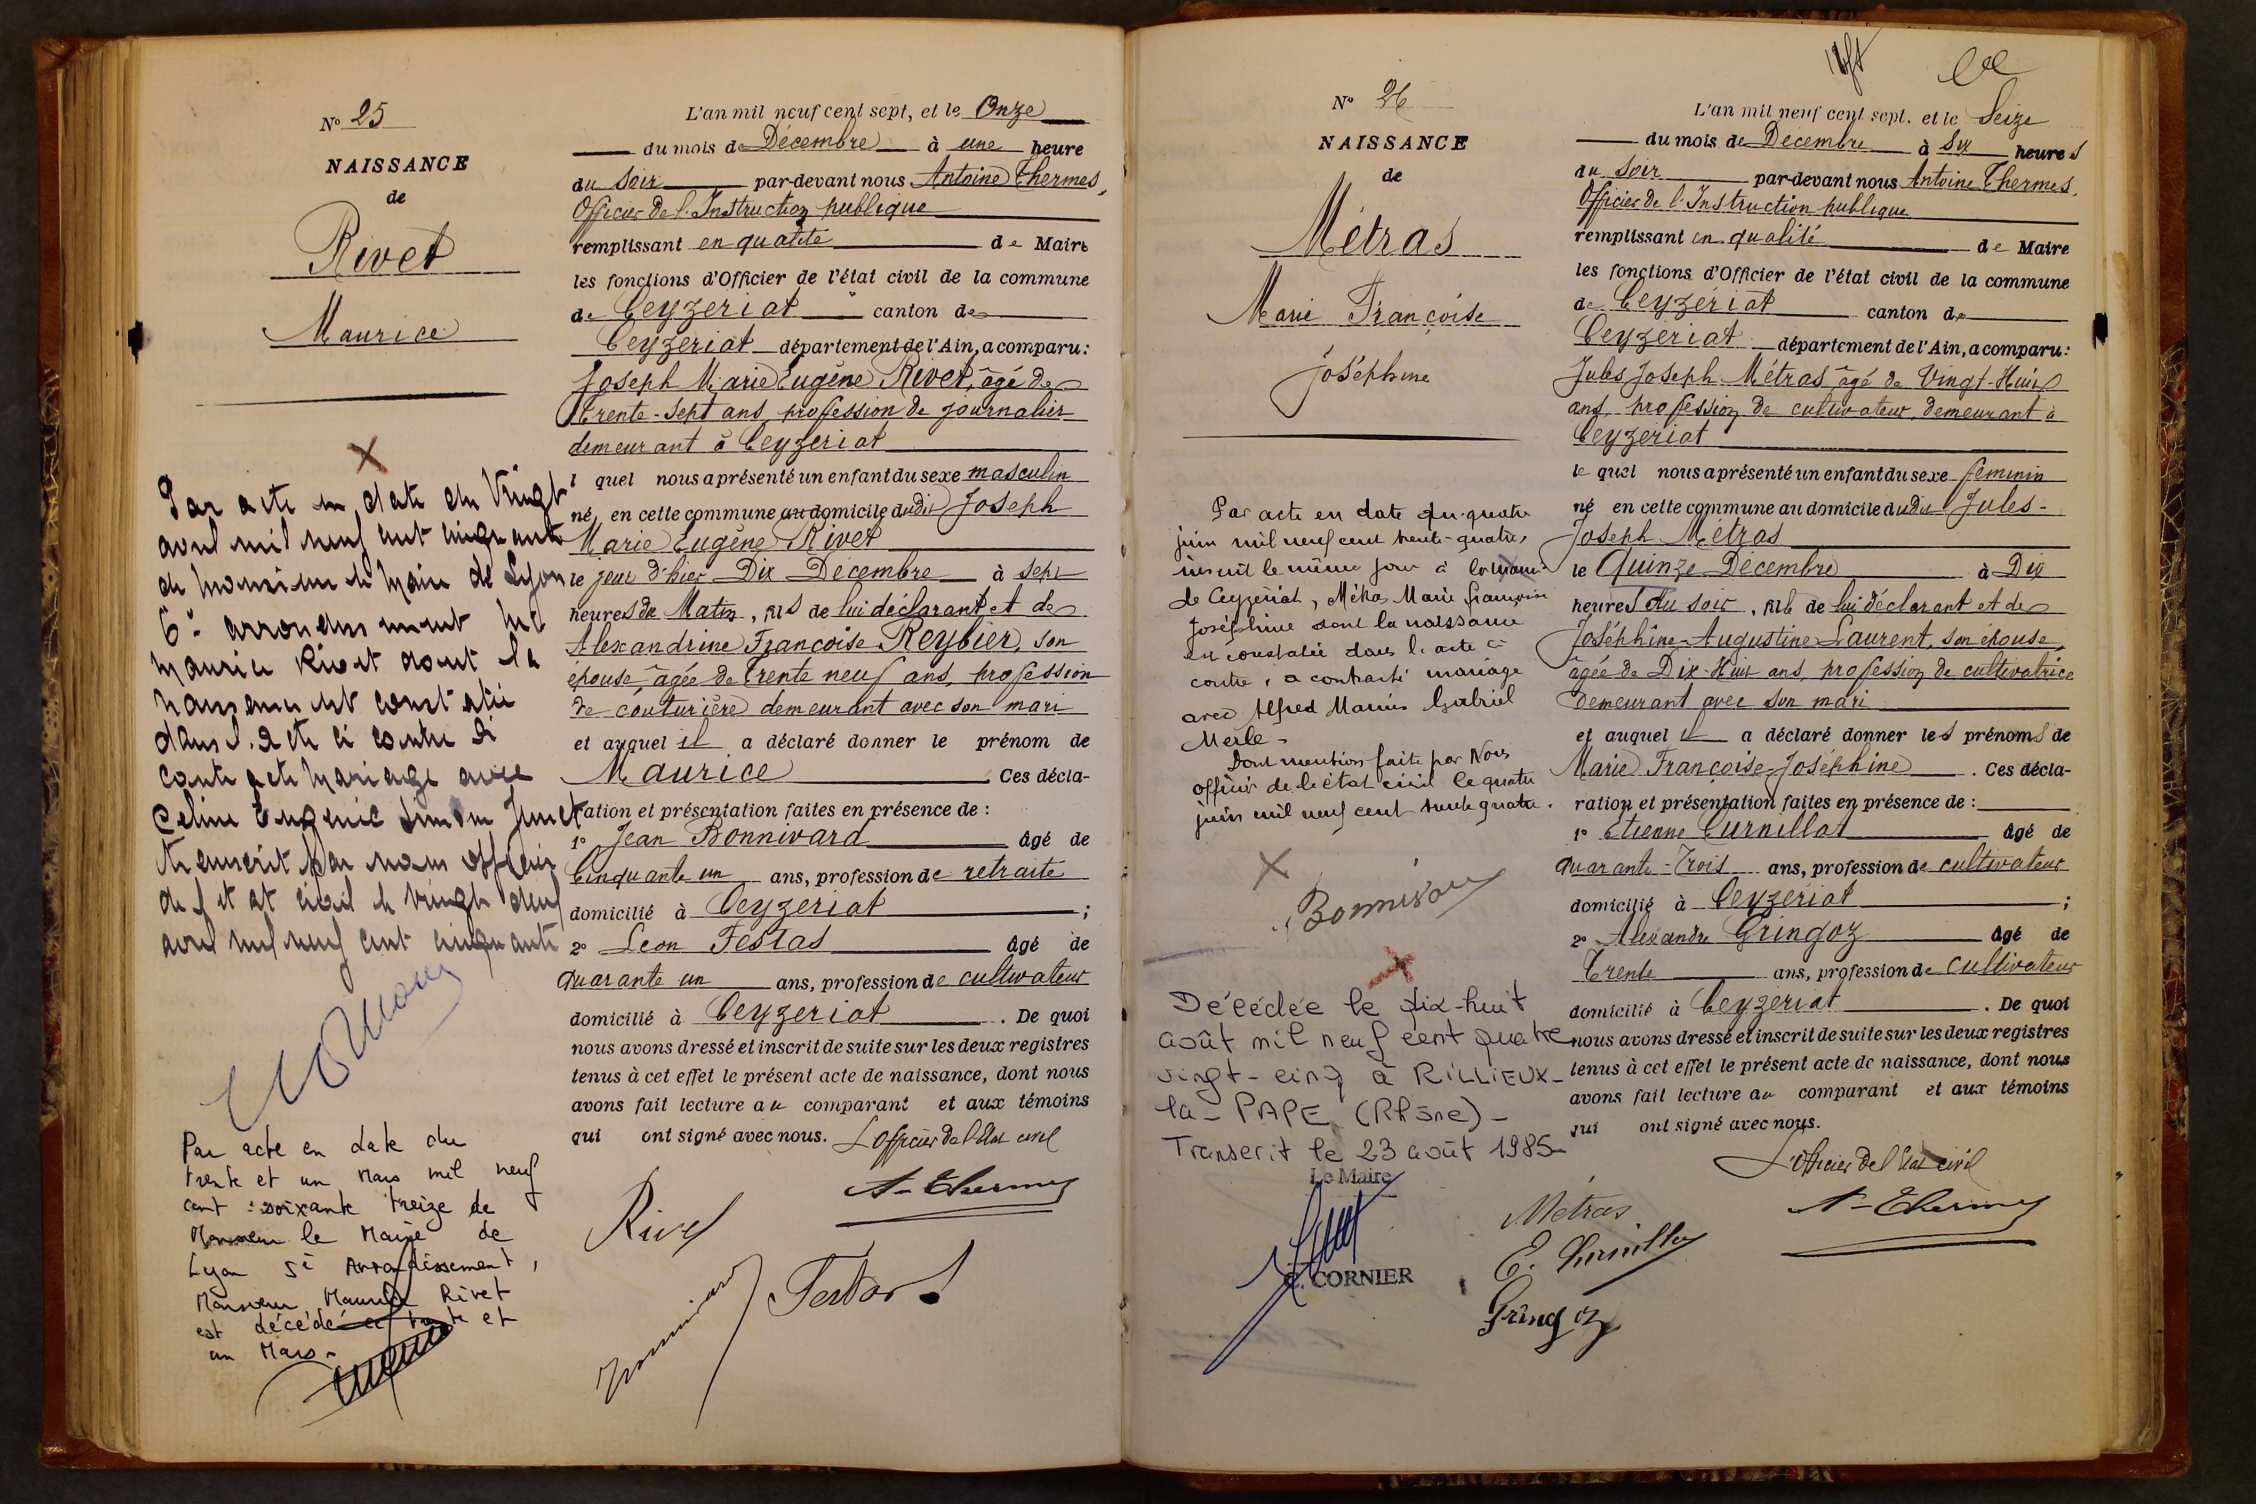 Nº 25
NAISSANCE
de
Rivet
Maurice
Par acte en date du Vingt
avril mil neuf cent cinquante
de Monsieur le Maire de Lyon
6e arrondissement
Maurice Rivet dont la
naissance est constatée
dans l'acte ci contre a
contracté mariage avec
Celine Eugenie Junet
Transcrit par nous officier
de l'état civil le vingt deux
avril mil neuf cent cinquante
Par acte en date du
trente et un Mars mil neuf
cent soixante treize de
Monsieur le Maire de
Lyon 5è Arrondissement,
Monsieur Maurice Rivet
est décédé le trente et
un Mars.
L'an mil neuf cent sept, et le Onze
du mois de Décembre à une heure
du Soir par-devant nous Antoine Thermes,
Officier de l'Instruction publique
remplissant en qualité de Maire
les fonctions d'Officier de l'état civil de la commune
de Ceyzeriat canton de
Ceyzeriat département de l'Ain, a comparu :
Joseph Marie Eugène Rivet, âgé de
Trente-Sept ans profession de journalier
demeurant à Ceyzeriat
l quel nous a présenté un enfant du sexe masculin
né en cette commune au domicile dudit Joseph
Marie Eugène Rivet
le jour d'hier Dix Décembre à Sept
heures du Matin, fils de lui déclarant et de
Alexandrine Françoise Reybier, son
épouse, âgée de Trente neuf ans, profession
de couturière demeurant avec son mari
et auquel il a déclaré donner le prénom de
Maurice Ces décla-
ration et présentation faites en présence de :
1º Jean Bonnivard âgé de
Cinquante un ans, profession de retraité
domicilié à Ceyzeriat ;
2º Leon Festas âgé de
Quarante un ans, profession de cultivateur
domicilié à Ceyzeriat . De quoi
nous avons dressé et inscrit de suite sur les deux registres
tenus à cet effet le présent acte de naissance, dont nous
avons fait lecture au comparant et aux témoins
qui ont signé avec nous. L'Officier de l'Etat civil
A-Thermes
Rivet
Nº 26
NAISSANCE
de
Métras
Marie Françoise
Joséphine
Par acte en date du quatre
juin mil neuf cent trente-quatre,
inscrit le même jour à la mairie
de Ceyzeriat, Métras Marie françoise
Joséphine dont la naissance
est constatée dans l'acte ci
contre, a contracté mariage
avec Alfred Marius Gabriel
Merle.
Dont mention faite par Nous
officier de l'état civil le quatre
juin mil neuf cent trente quatre.
Décédée le dix-huit
août mil neuf cent quatre
vingt-cinq à RILLIEUX-
la-PAPE (Rhône)-
Transcrit le 23 août 1985-
Le Maire
CORNIER
L'an mil neuf cent sept, et le Seize
du mois de Décembre à Six heures
du Soir par-devant nous Antoine Thermes,
Officier de l'Instruction publique
remplissant en qualité de Maire
les fonctions d'Officier de l'état civil de la commune
de Ceyzériat canton de
Ceyzeriat département de l'Ain, a comparu :
Jules Joseph Métras âgé de Vingt-Huit
ans, profession de cultivateur, demeurant à
Ceyzeriat
le quel nous a présenté un enfant du sexe féminin
né en cette commune au domicile dudit Jules-
Joseph Métras
le Quinze Décembre à Dix
heures du soir, fille de lui déclarant et de
Joséphine-Augustine Laurent, son épouse,
âgée de Dix-Huit ans, profession de cultivatrice
demeurant avec son mari
et auquel il a déclaré donner les prénoms de
Marie Françoise-Joséphine . Ces décla-
ration et présentation faites en présence de :
1º Etienne Curnillat âgé de
Quarante-Trois ans, profession de cultivateur
domicilié à Ceyzériat ;
2º Alexandre Gringoz âgé de
Trente ans, profession de cultivateur
domicilié à Ceyzériat . De quoi
nous avons dressé et inscrit de suite sur les deux registres
tenus à cet effet le présent acte de naissance, dont nous
avons fait lecture au comparant et aux témoins
qui ont signé avec nous.
L'Officier de l'Etat civil
A-Thermes
Métras
Gringoz